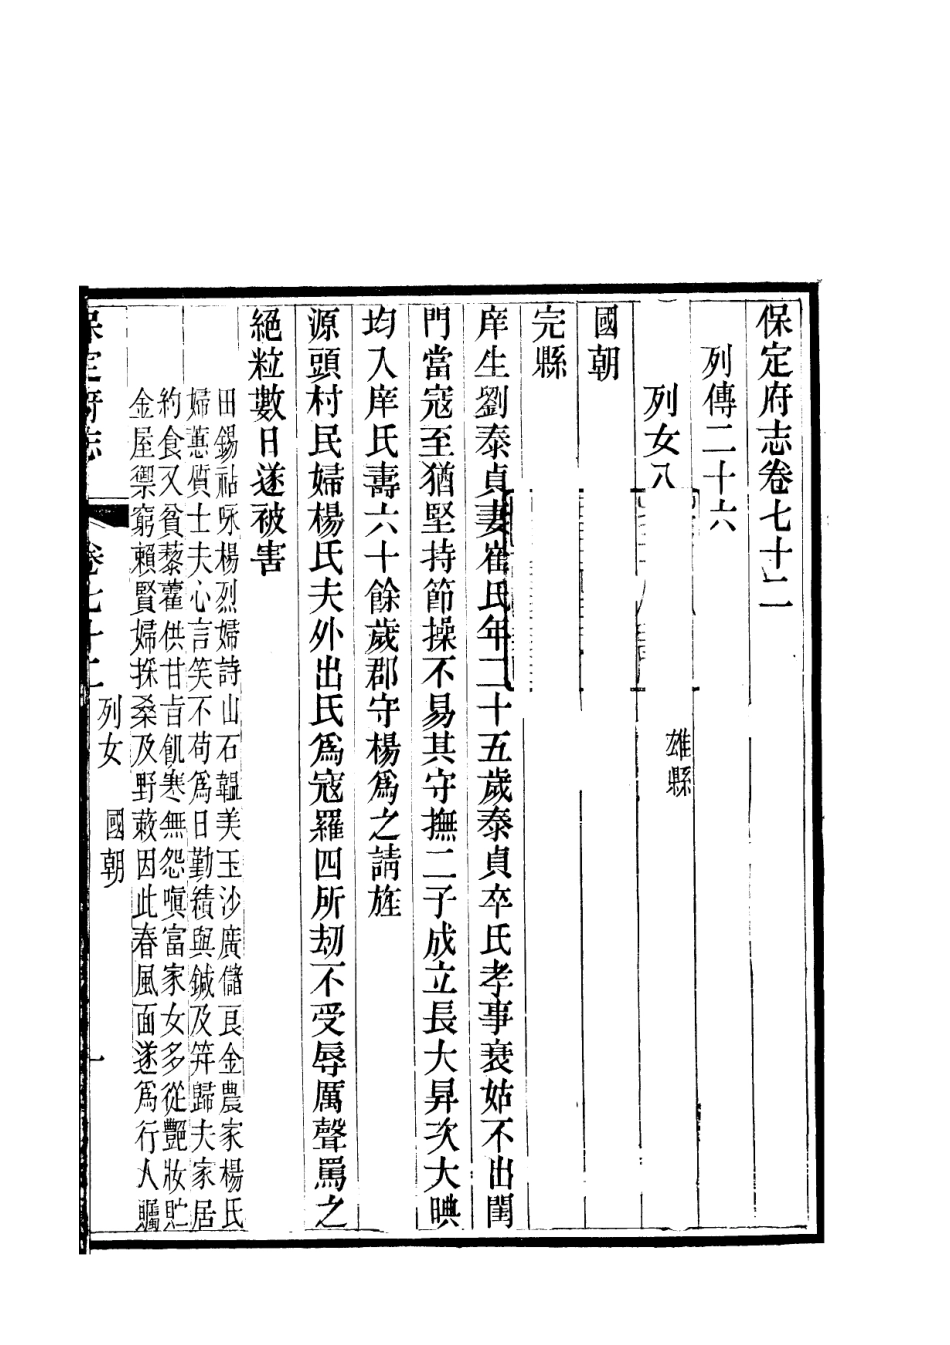 保定府志卷七十二
列傳二十六
列女八
雄縣
國朝
完縣
庠生劉泰貞妻崔氏年二十五歲泰貞卒氏孝事衰姑不出閨
門當寇至猶堅持節操不易其守撫二子成立長大昇次大㬍
均入庠氏壽六十餘歲郡守楊爲之請旌
源頭村民婦楊氏夫外出氏爲寇羅四所刧不受辱厲聲罵之
絕粒數日遂被害
田錫祜咏楊烈婦詩山石韞美玉沙廣儲良金農家楊氏
婦蕙質士夫心言笑不苟爲日勤績與鍼及笄歸夫家居
約食又貧藜藿供甘旨飢寒無怨嗔富家女多從艷妝貯
金屋禦窮賴賢婦採桑及野蔌因此春風面遂爲行人矚
保定府志
卷七十二
列女
國朝
一